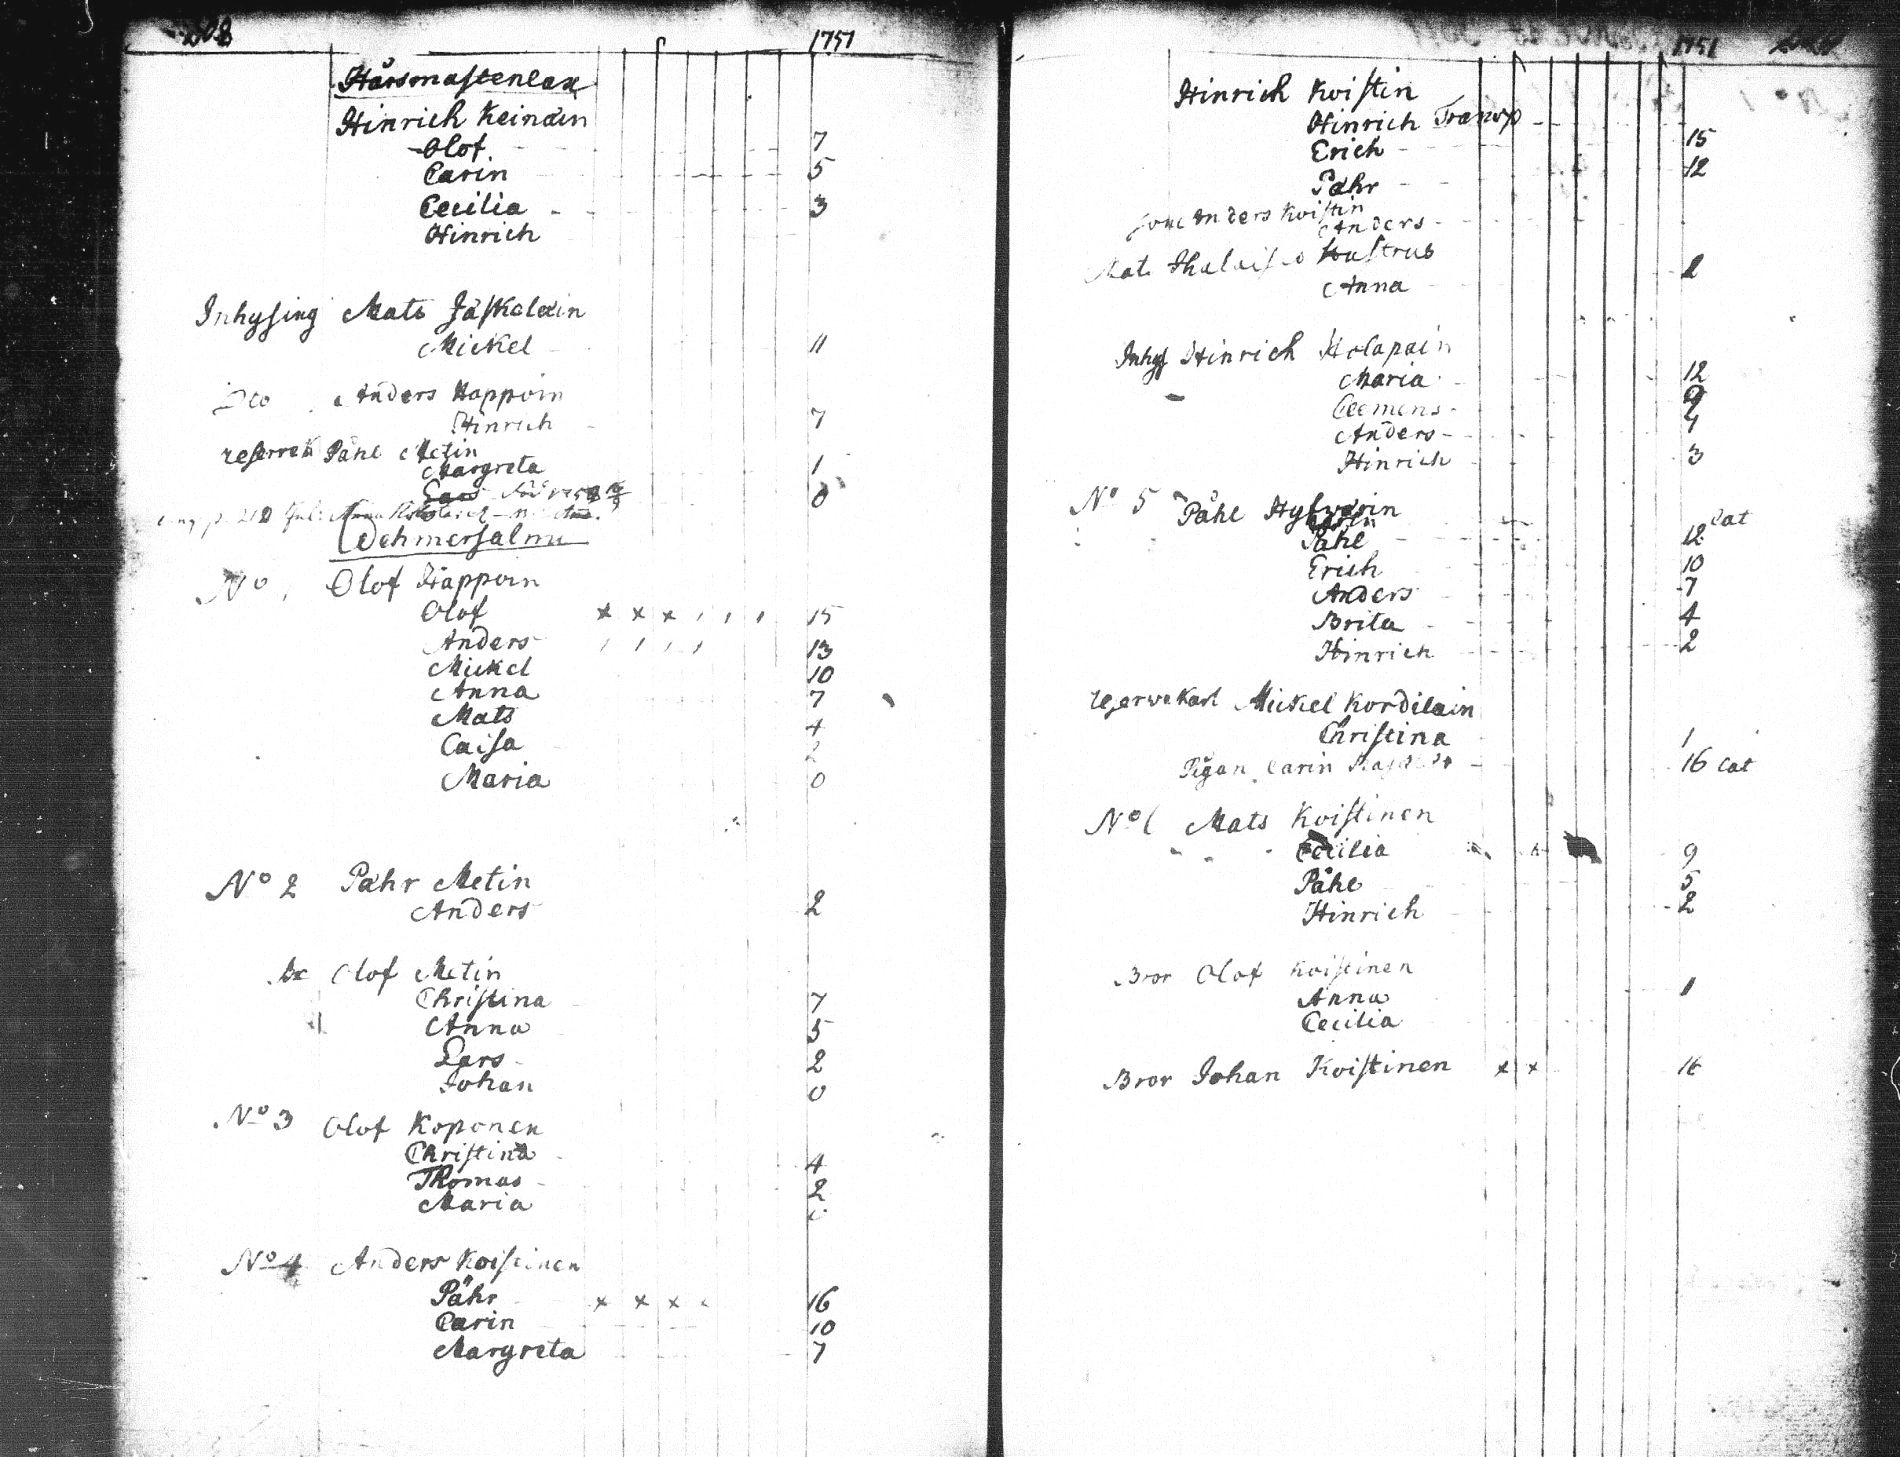 208 1751
Hårsmastenlax
Hinrich Keinäin
Olof 7
Carin 5
Cecilia 3
Hinrich
Inhysing Mats Jäskeläin
Mickel 11
Dto Anders Happoin
Hinrich 7
reserrek Påhl Metin
Margreta 1
Lars 0
Oehmersalmi
No 1 Olof Happoin
Olof x x x 15
Anders 13
Mickel 10
Anna 7
Mats 4
Caisa 2
Maria 0
No 2 Pähr Metin
Anders 2
Olof Metin
Christina 7
Anna 5
Lars 2
Johan 0
No 3 Olof Koponen
Christina 4
Thomas 2
Maria
No 4 Anders Koistinen
Pähr x x x 16
Carin 10
Margreta 7
1751
Hinrich Koistin
Hinrich Transp
Erich 15
Pähr 12
Anders Koistin
Anders
Mats Hustrus
Anna 2
Inhys Hinrich Holapain
Maria 12
Clemens 9
Anders 4
Hinrich 3
No 5 Påhl Hyfvärin
Påhl 12 Cat
Erich 10
Anders 7
Brita 4
Hinrich 2
reserve Karl Mickel Kordilain
Christina 1
Pigan Carin 16 Cat
No 6 Mats Koistinen
Cecilia 9
Påhl 5
Hinrich 2
Bror Olof Koistinen
Anna 1
Cecilia
Bror Johan Koistinen x x 16